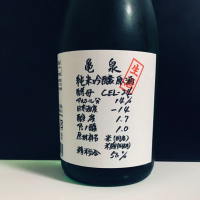 亀泉
生
純米吟醸原酒
酵母 CEL-24
アルコール分 14%
日本酒度 -14
酸度 1.7
アミノ酸 1.0
原材料名 米(国産)
精米歩合 50%